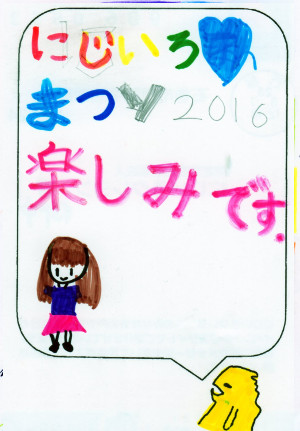 にじいろ
まつり2016
楽しみです.